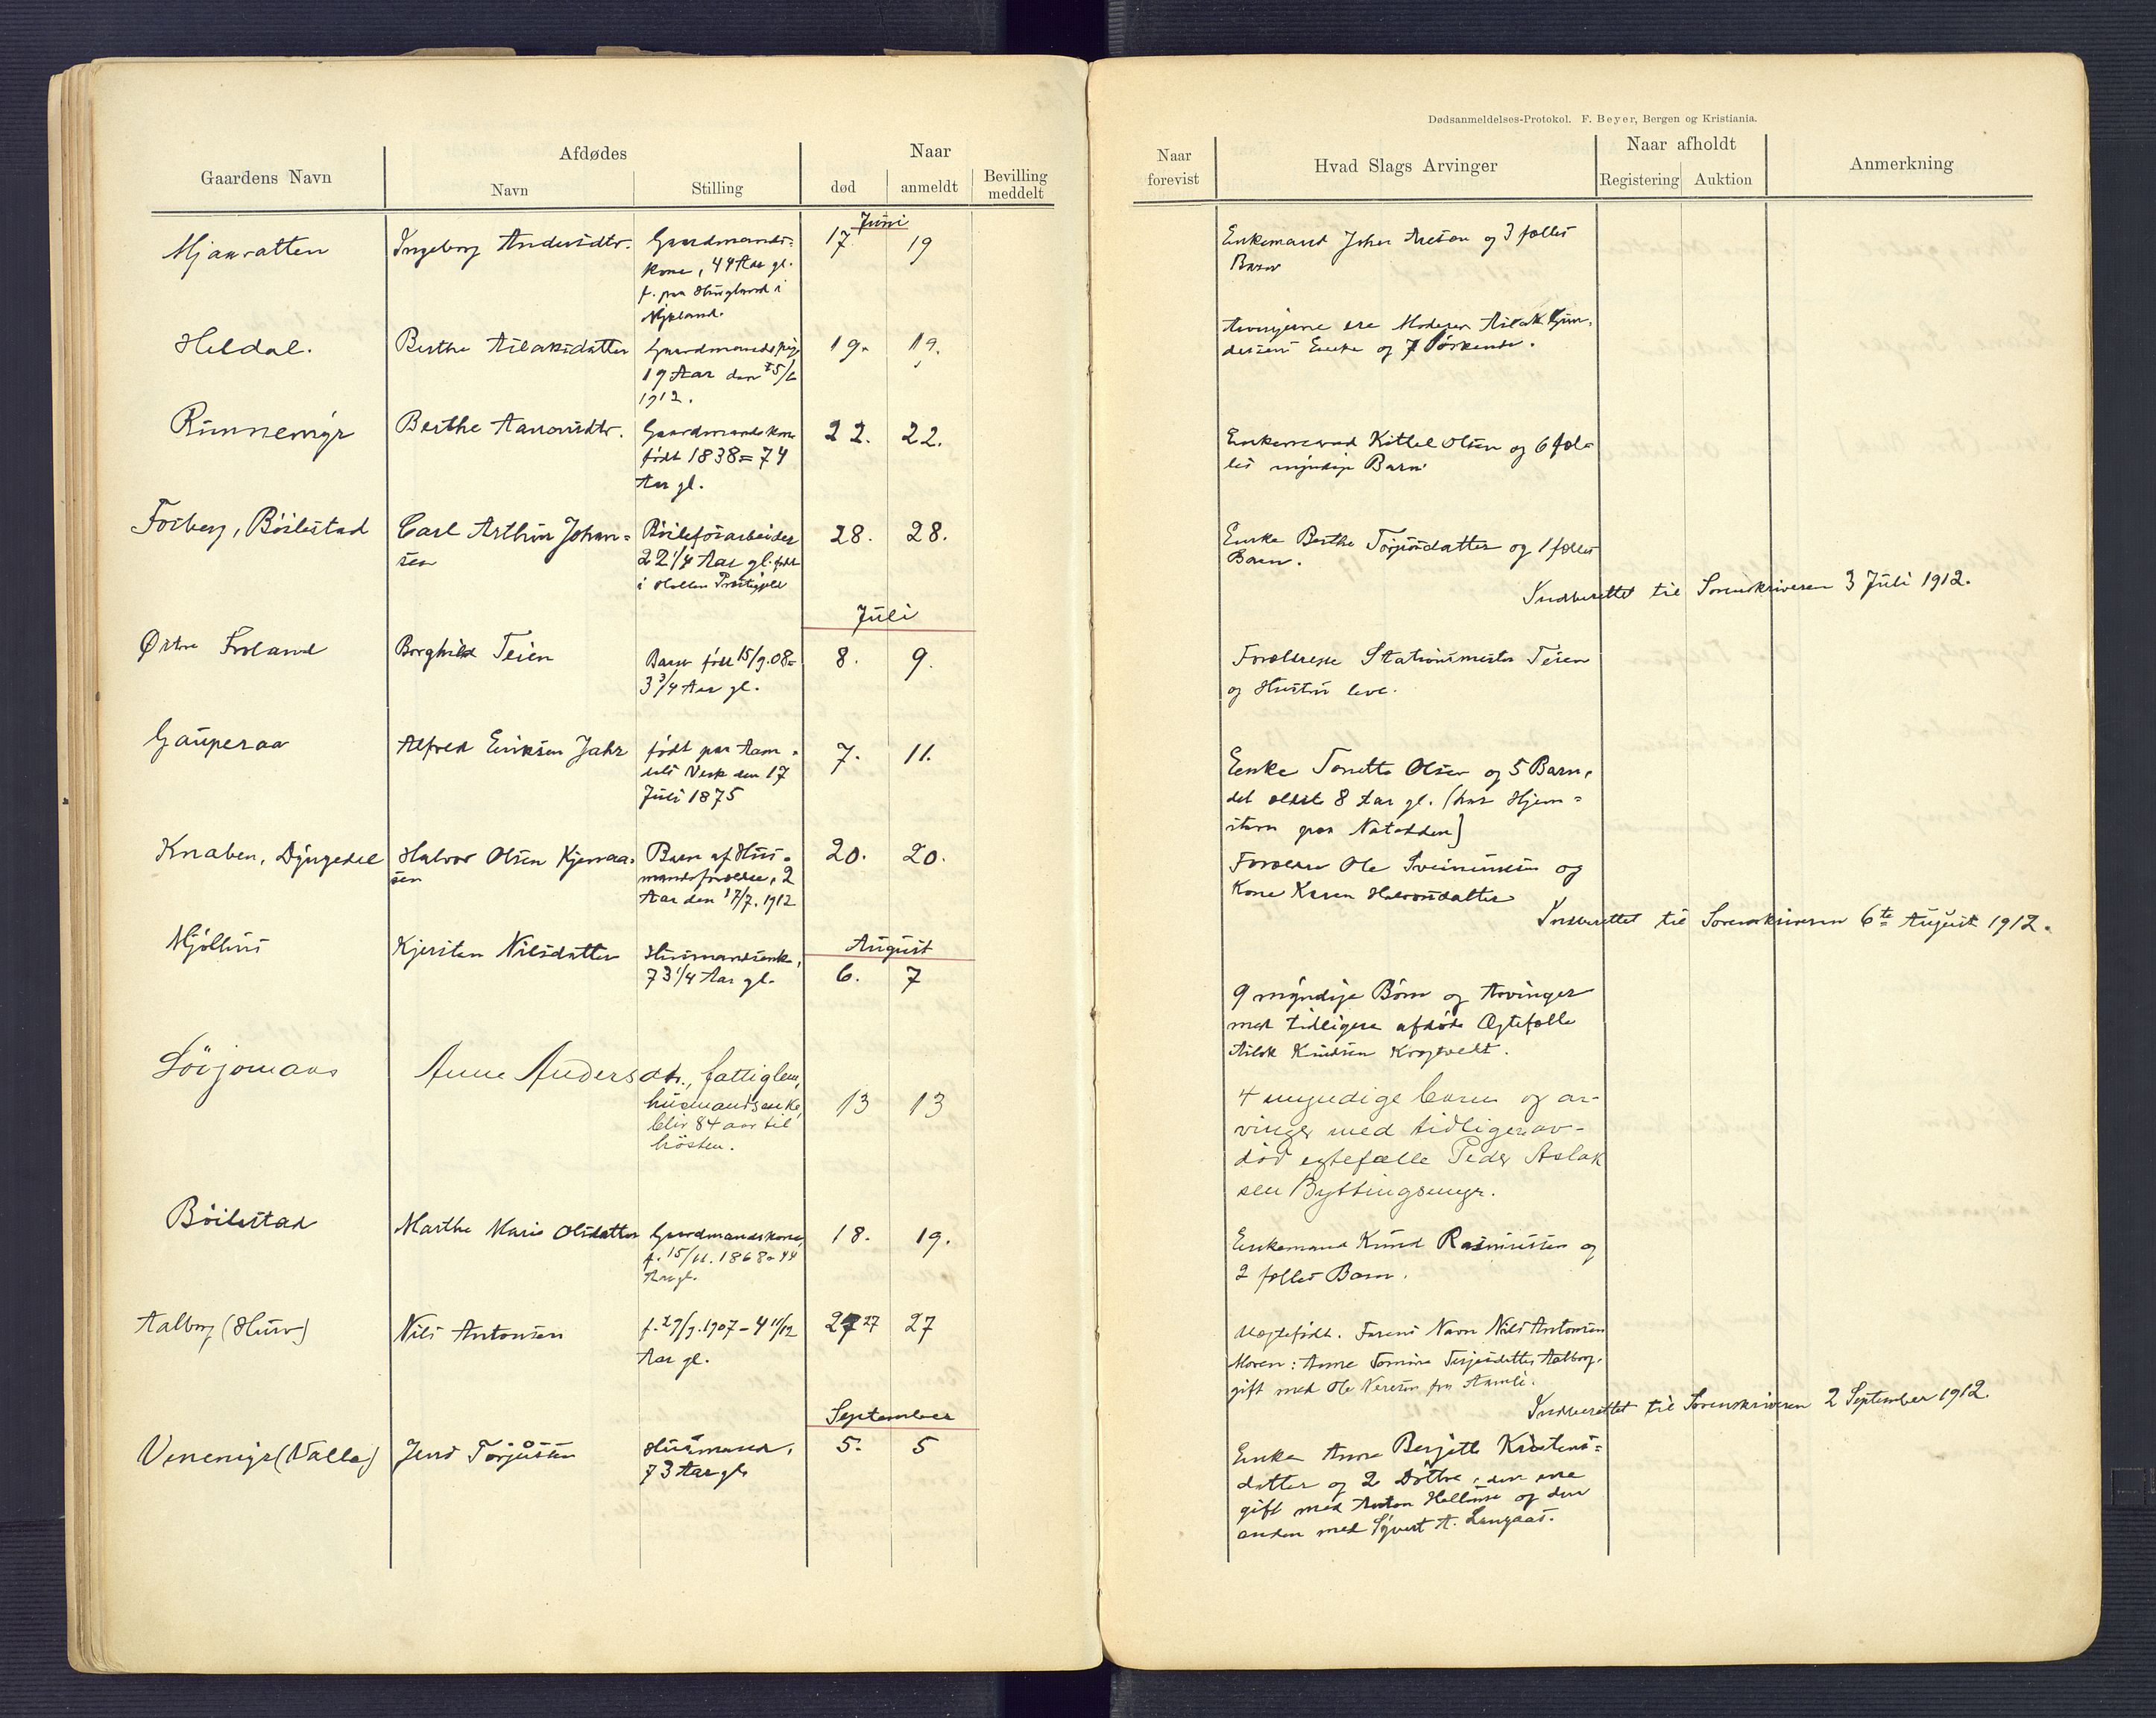 Dødsanmeldelses-Protokol. F. Beyer, Bergen og Kristiania.
Gaardens Navn
Afdødes
Navn
Stilling
Naar
død
anmeldt
Bevilling meddelt
Naar forevist
Hvad Slags Arvinger
Naar afholdt
Registering
Auktion
Anmerkning
Juni
Mjaavatten
Ingeborg Andersdtr.
Gaardmands-
kone, 44 Aar gl.
f. paa Hugland i
17.
19
Enkemand Johan og 3 fælles
Barn
Heldal.
Berthe Aslaksdatter
Gaardmandspige
19 Aar den 25/2
1912.
19.
19.
Arvingerne ere Moderen Aslak Gun-
dersens Enke og 7 Søskende.
Runnemyr
Berthe Aanonsdtr.
Gaardmandskone
født 1838 = 74
Aar gl.
22.
22.
Enkemand Kittel Olsen og 6 fæl-
les myndige Barn.
Forberg, Böilestad
Carl Arthur Johan-
sen
Böilefosarbeider
22 1/4 Aar gl. født
i Hollen Præstegjeld
28.
28.
Enke Berthe Torjusdatter og 1 fælles
Barn.
Indberettet til Sorenskriveren 3 Juli 1912.
Juli
Østre Froland
Borghild Teien
Barn født 15/9.08 =
3 3/4 Aar gl.
8.
9.
Forældrene Stationsmester Teien
og Hustru leve.
Gauperaa
Alfred Eriksen Jahr
født paa Aam-
dals Verk den 17
Juli 1875
7.
11.
Enke Tonette Olsen og 5 Barn,
det ældste 8 Aar gl. (har Hjem-
stavn paa Notodden)
Knaben, Dyngedel
Halvor Olsen Kjenaa-
sen
Barn af Hus-
mandsforældre, 2
Aar den 17/7. 1912
20.
20.
Forældre Ole Sveinunsen og
Kone Karen Halvorsdatter
Indberettet til Sorenskriveren 6te August 1912.
August
Mjölhus
Kjersten Nilsdatter
Husmandsenke,
73 1/4 Aar gl.
6.
7
9 myndige Börn og Arvinger
med tidligere afdöde Ægtefælle
Aslak Knudsen Krogtvedt.
Lörjomaas
Anne Andersdtr., fattiglem,
husmandsenke,
blir 84 aar til
hösten.
13
13
4 myndige barn og ar-
vinger med tidligere av-
död egtefælle Peder Aslak
sen Byttingsmyr.
Böilestad
Marthe Marie Olsdatter
Gaardmandskone,
f. 15/11. 1868 = 44
Aar gl.
18.
19.
Enkemand Knud Rasmussen og
2 fælles Barn.
Aalborg (Hurv)
Nils Antonsen
f. 29/9. 1907 - 4 11/12
Aar gl.
27 27
27
Uægtefødt. Farens Navn Nils Antonsen
Moren: Anne Tomine Terjesdatter Aalborg,
gift med Ole Nersten fra Aamli.
Indberettet til Sorenskriveren 2 September 1912.
September
Venemyr (Valle)
Jens Torjusen
Husmand,
73 Aar gl.
5.
5
Enke Anne Bergitte Kristens-
datter og 2 Döttre, den ene
gift med Anton Hellause og den
anden med Syvert A. Langaas.